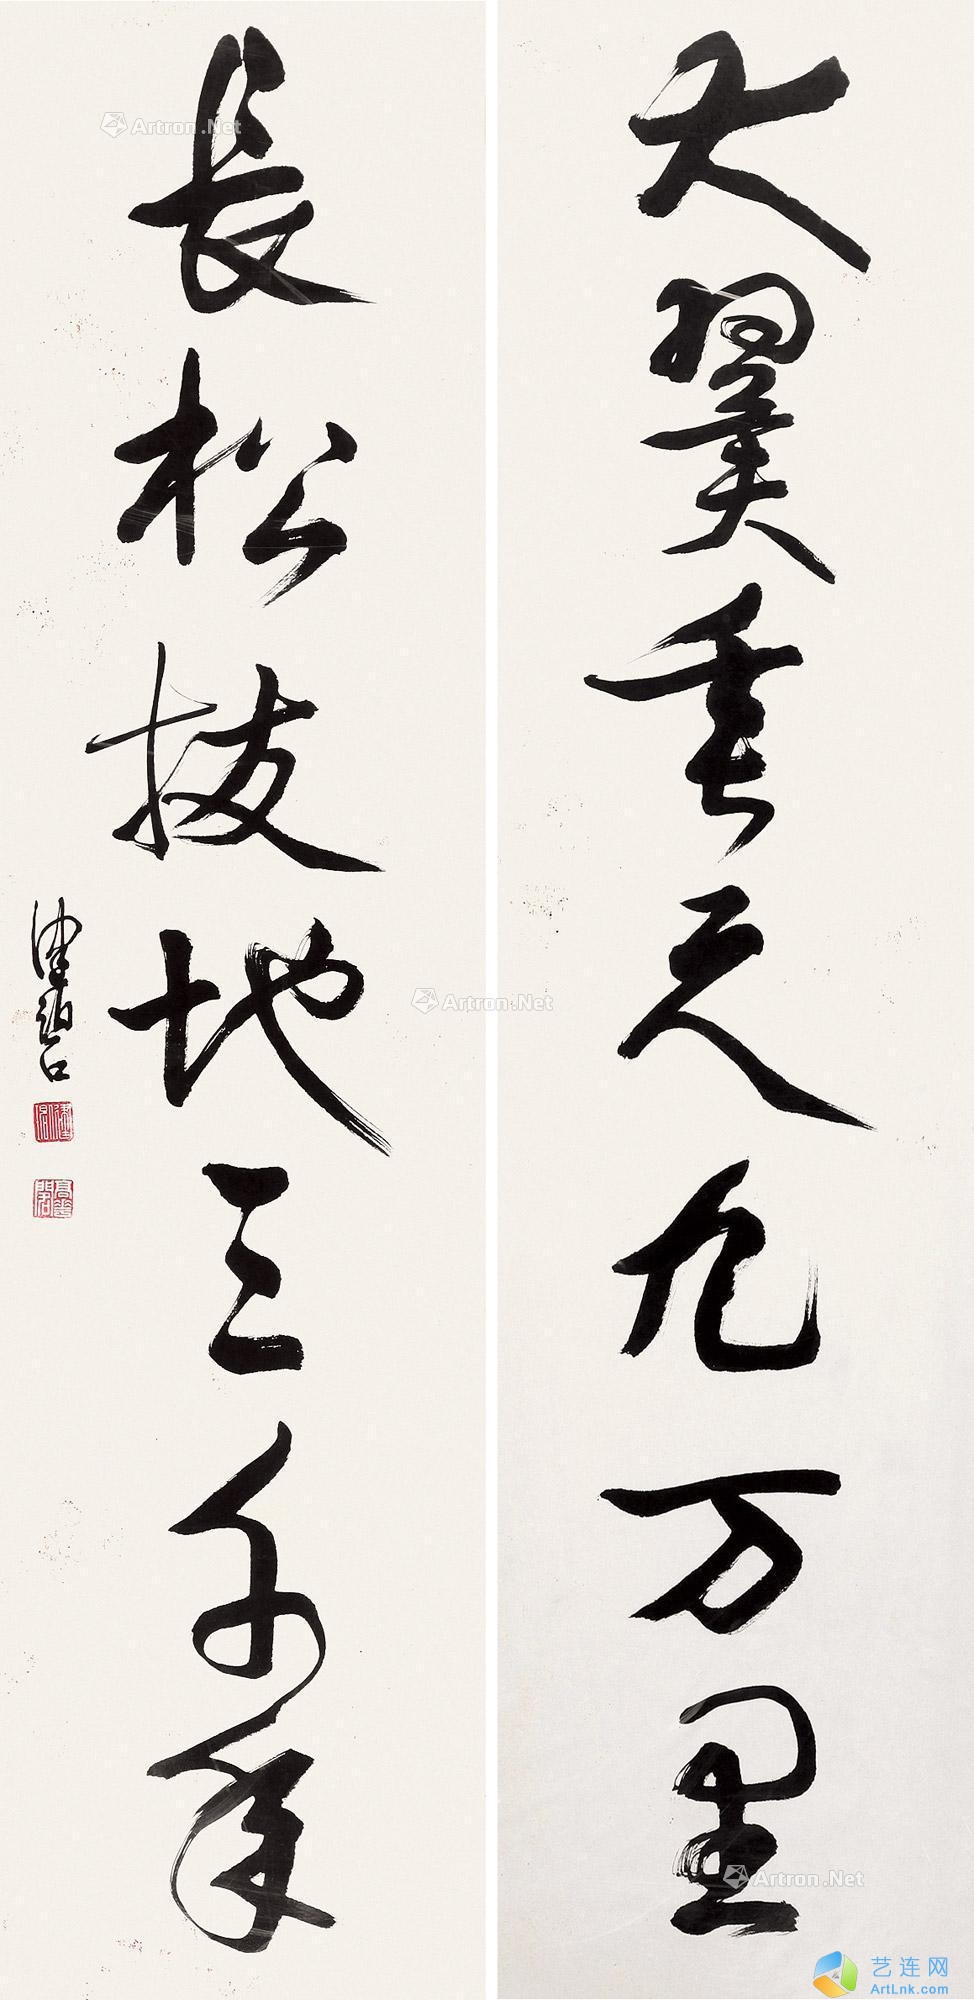 大翼垂天九万里
长松拔地三千年
陈佩秋
Artron.Net
Artron.Net
Artron.Net
艺连网
ArtLnk.com